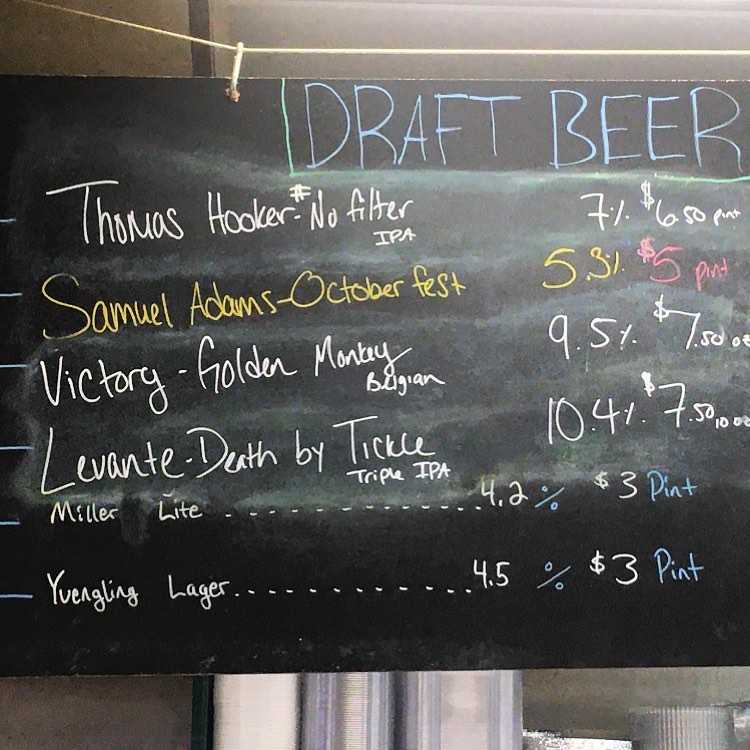 DRAFT BEER
Thomas Hooker-#No filter 7% $6.50 pint
IPA
Samuel Adams-October fest 5.3% $5 pint
Victory-Golden Monkey 9.5% $7.50 oz
Belgian
Levante-Death by Tickle 10.4% $7.50 10 oz
Triple IPA
Miller Lite ................ 4.2% $3 Pint
Yuengling Lager............. 4.5 % $3 Pint